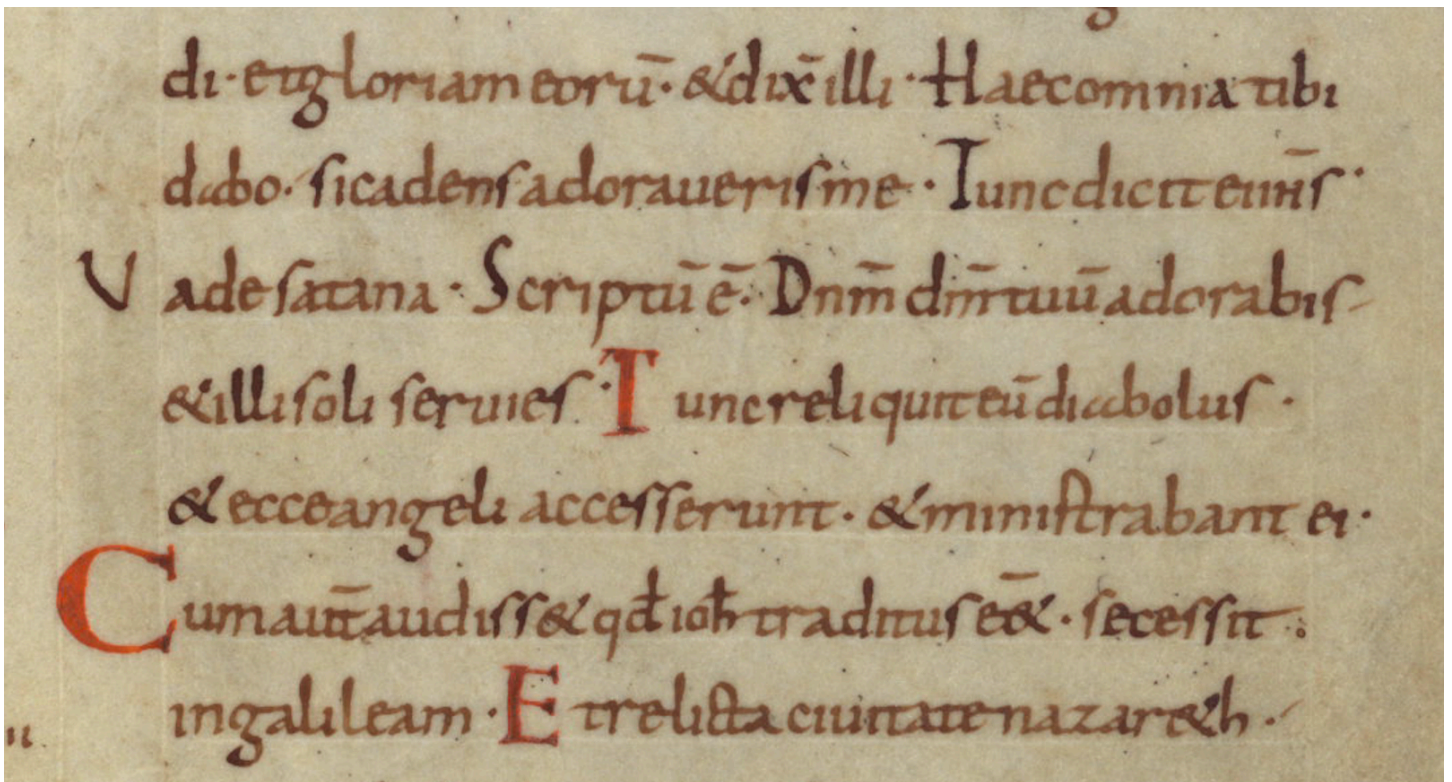 di · et gloriam eorū · & dix̄ illi · Haec omnia tibi
dabo · si cadens adoraueris me · Tunc dicit ei ih̄s ·
Vade satana · Scriptū ē · Dnm̄ dm̄ tuū adorabis
& illi soli seruies · Tunc reliquit eū diabolus ·
& ecce angeli accesserunt · & ministrabant ei ·
Cum aut̄ audiss& qđ ioħ traditus ēet& · secessit ·
in galileam · Et relicta ciuitate nazar&h ·